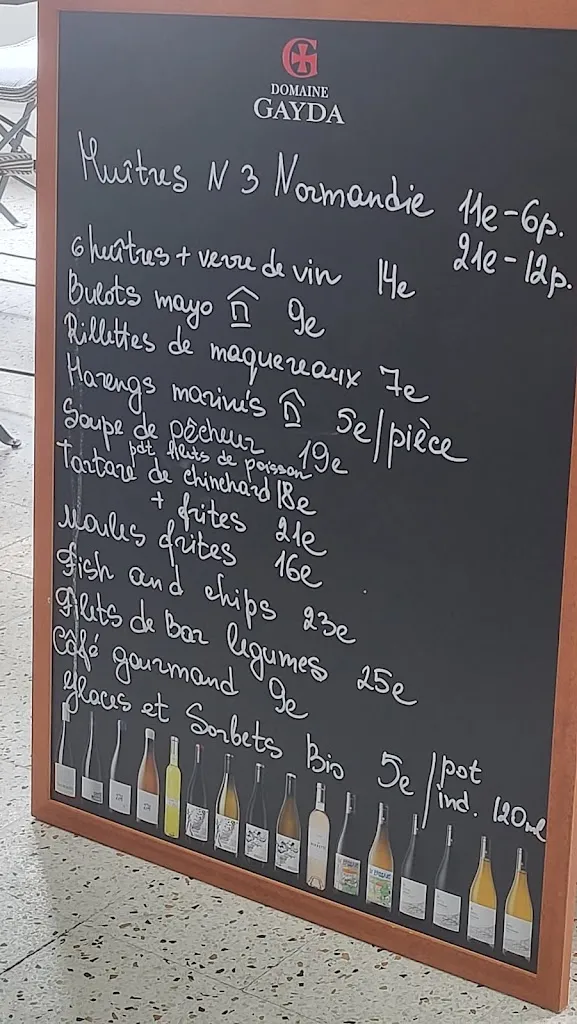 DOMAINE
GAYDA
Huîtres N 3 Normandie 11e-6p.
21e-12p.
6 huîtres + verre de vin 14e
Bulots mayo 9e
Rillettes de maquereaux 7e
Harengs marinés 5e/pièce
Soupe de pêcheur 19e
pdt, filets de poisson
Tartare de chinchard 18e
+ frites 21e
Moules frites 16e
Fish and chips 23e
Filets de Bar légumes 25e
Café gourmand 9e
Glaces et Sorbets Bio 5e/pot
ind. 120ml